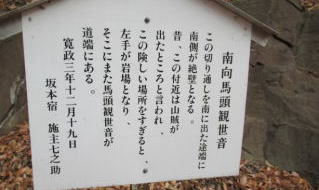 南向馬頭観世音
この切り通しを南に出た途端に
南側が絶壁となる。
昔、この付近は山賊が
出たところと言われ、
この険しい場所をすぎると、
左手が岩場となり、
そこにまた馬頭観世音が
道端にある。
寛政三年十二月十九日
坂本宿 施主七之助